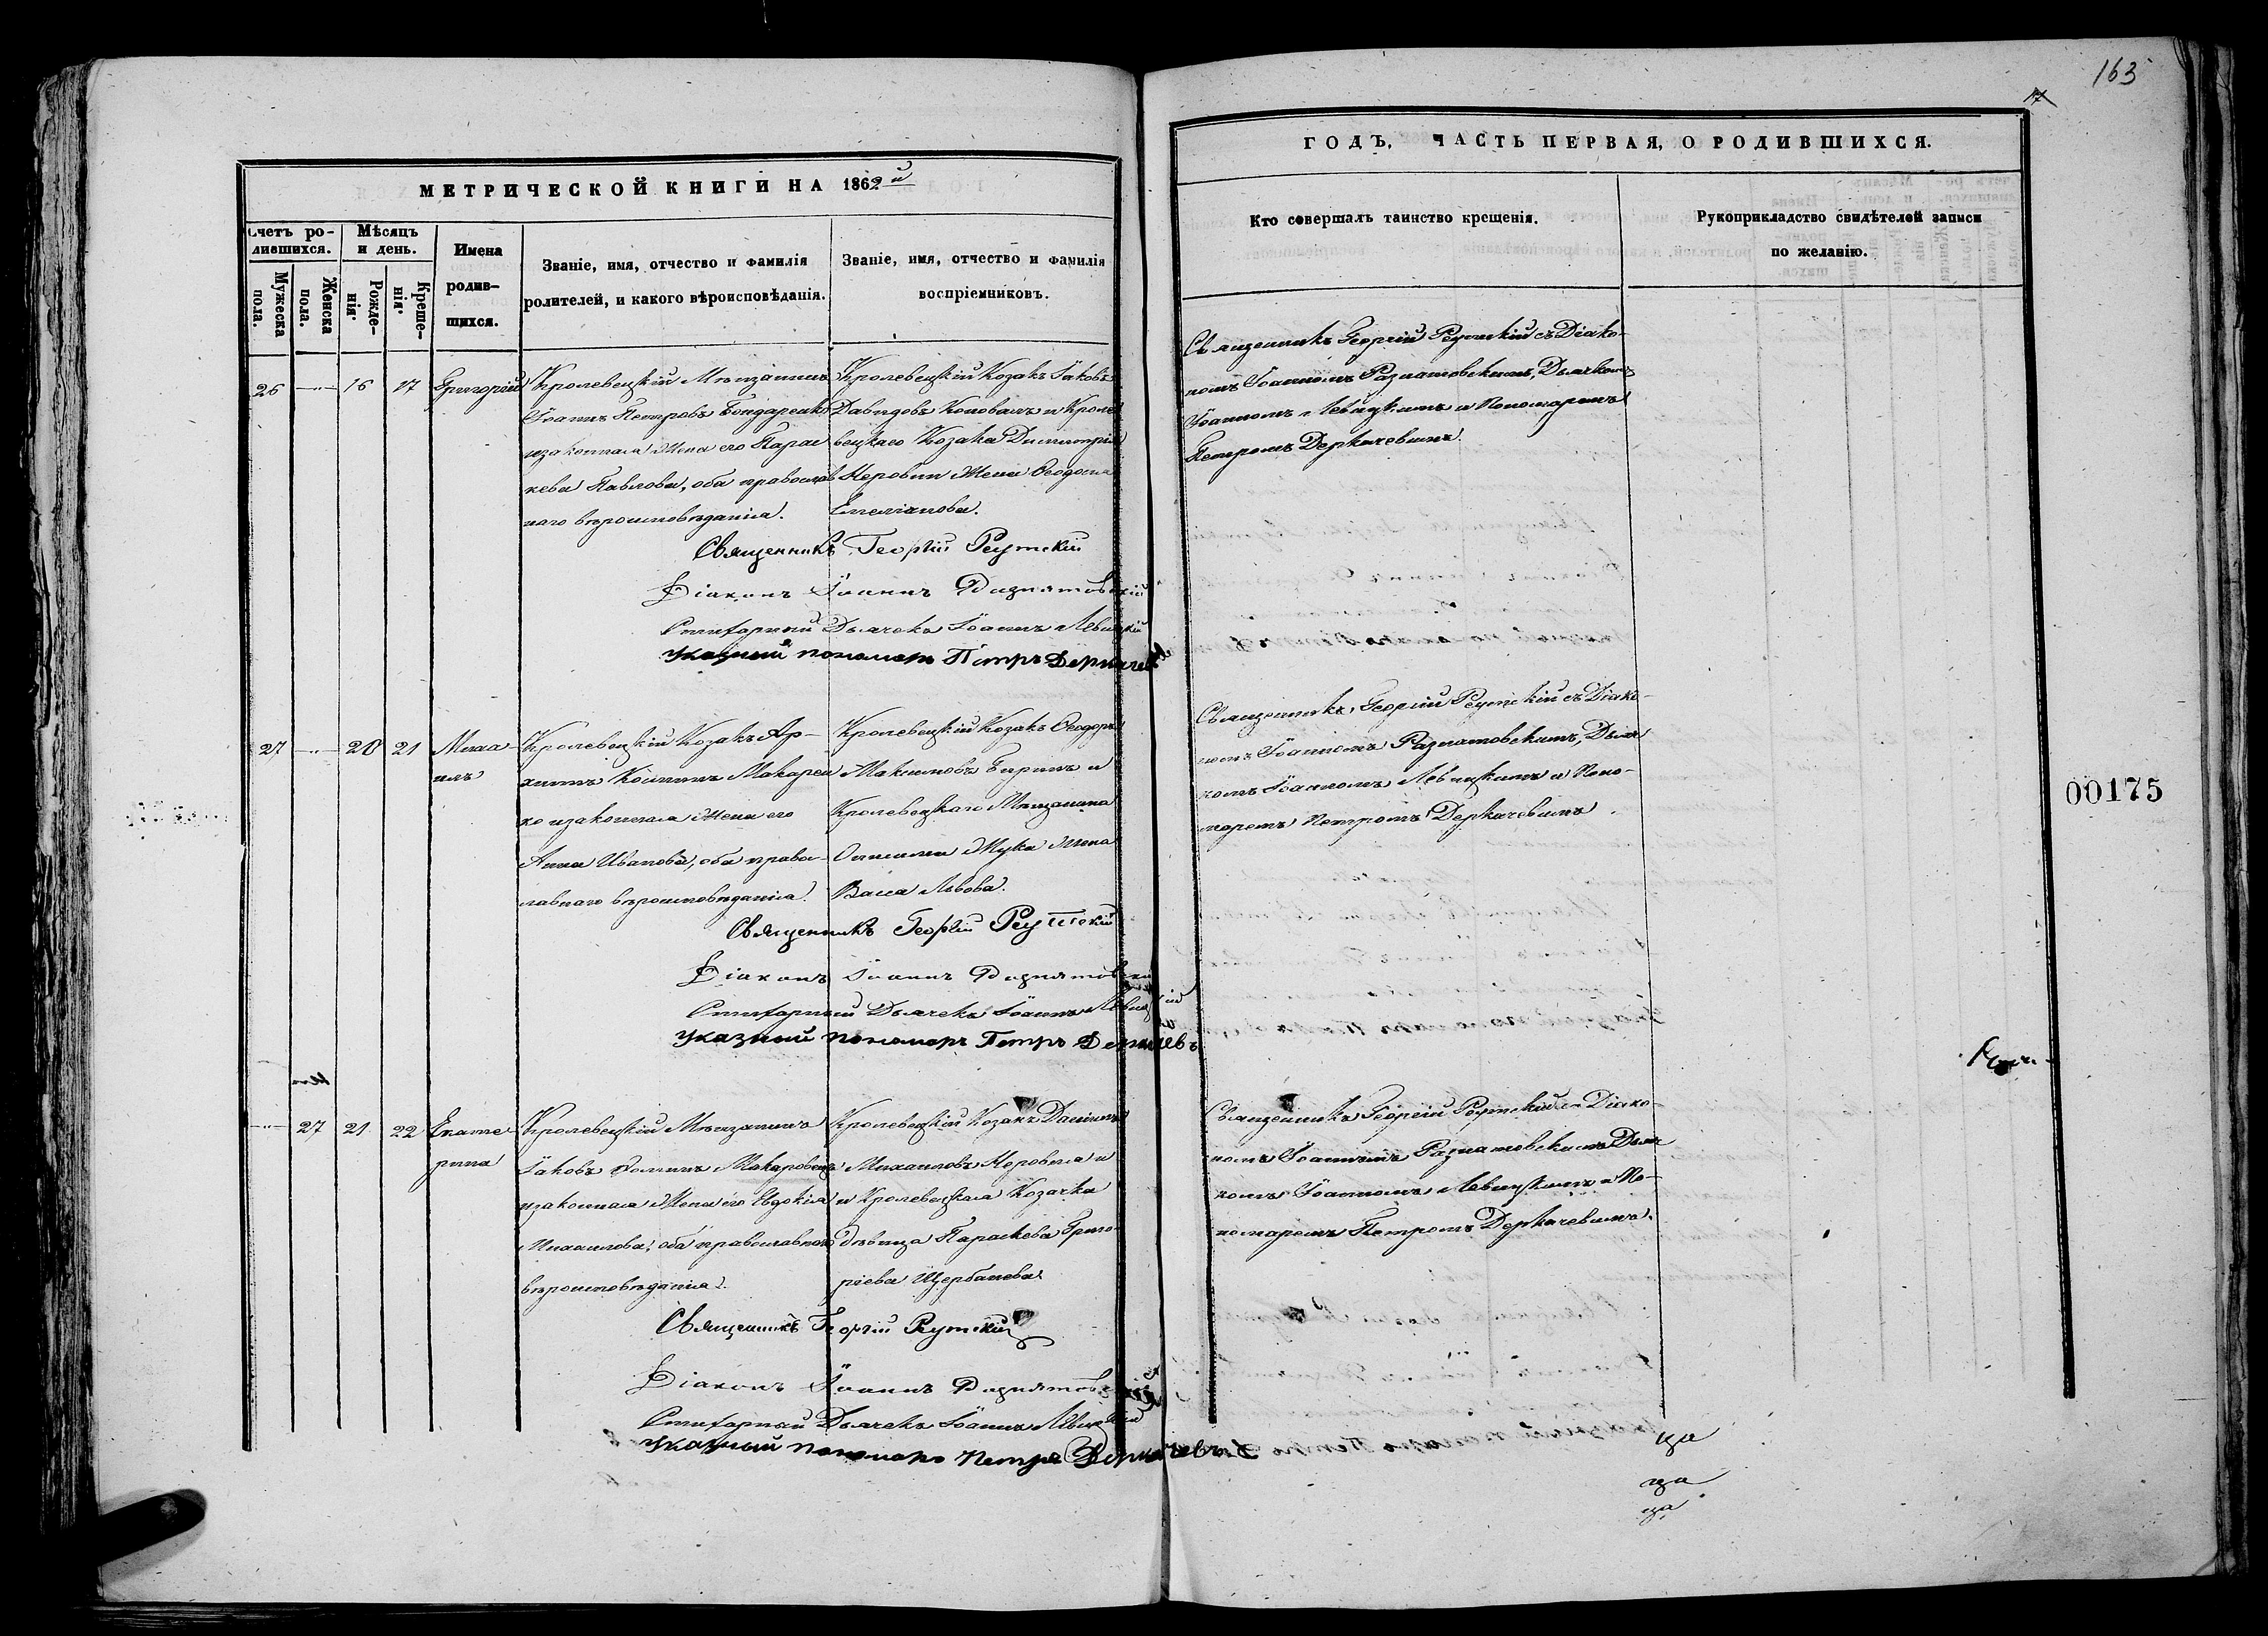 163
17
МЕТРИЧЕСКОЙ КНИГИ НА 1862й
ГОДЪ, ЧАСТЬ ПЕРВАЯ, О РОДИВШИХСЯ.
Счетъ ро-
дившихся.
Мужеска
пола.
Женска
пола.
Мѣсяцъ
и день.
Рожде-
нія
Креще-
нія
Имена
родив-
шихся.
Званіе, имя, отчество и фамилія
родителей, и какого вѣроисповѣданія.
Званіе, имя, отчество и фамилія
воспріемниковъ.
Кто совершалъ таинство крещенія.
Рукоприкладство свидѣтелей записи
по желанію.
26
16
17
Григорій
Кролевецкій Мѣщанинъ
Іоаннъ Петровъ Бондаренко
и законная Жена его Парас
кева Павлова, оба православ
наго вѣроисповѣданія.
Кролевецкій Козакъ Іаковъ
Давидовъ Коновалъ и Кроле
вецкаго Козака Димитрія
Неровни Жена Феодосія
Емеліанова.
Священникъ Георгій Реутскій съ Діако-
номъ Іоанномъ Разнатовскимъ, Дьячкомъ
Іоанномъ Левицкимъ и Пономаремъ
Петромъ Деркачевымъ.
Священникъ Георгій Реутскій
Діаконъ Іоаннъ Разнатовскій
Стихарный Дьячекъ Іоаннъ Левицкій
Указный пономарь Петръ Деркачевъ
27
20
21
Миха-
илъ
Кролевецкій Козакъ Ар-
хиппъ Макарен
ко и законная Жена его
Анна Иванова, оба право-
лавнаго вѣроисповѣданія.
Кролевецкій Козакъ Феодоръ
Максимовъ и
Кролевецкаго Мѣщанина
Жука Жена
Васса Львова.
Священникъ Георгій Реутскій съ Діако-
номъ Іоанномъ Разнатовскимъ, Дьяч
комъ Іоанномъ Левицкимъ и Поно-
маремъ Петромъ Деркачевымъ.
00175
Священникъ Георгій Реутскій
Діаконъ Іоаннъ Разнатовскій
Стихарный Дьячекъ Іоаннъ Левицкій
Указный пономарь Петръ Деркачевъ
27
21
22
Екате
рина
Кролевецкій Мѣщанинъ
Іаковъ Макаровецъ
и законная Жена его Евдокія
Михаилова, оба православнаго
вѣроисповѣданія.
Кролевецкій Козакъ Даніилъ
Михаиловъ Неровня и
и Кролевецкая Козачка
дѣвица Параскева Григо
ріева Щербакева.
Священникъ Георгій Реутскій съ Діако-
номъ Іоанномъ Разнатовскимъ Дьяч
комъ Іоанномъ Левицкимъ и По-
номаремъ Петромъ Деркачевымъ.
Священникъ Георгій Реутскій
Діаконъ Іоаннъ Разнатовскій
Стихарный Дьячекъ Іоаннъ Левицкій
Указный пономарь Петръ Деркачевъ